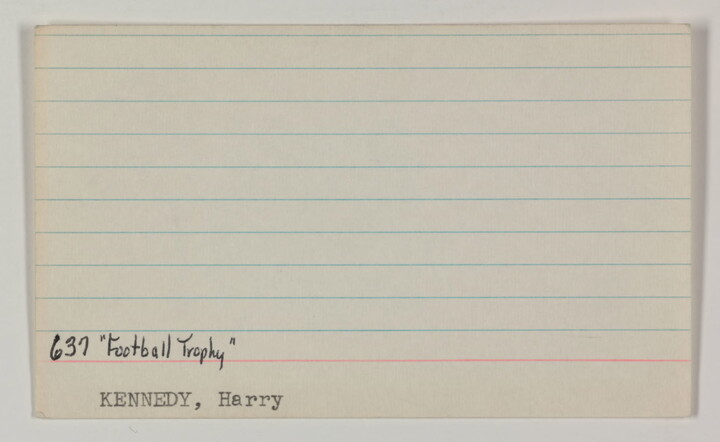 637 "Football Trophy"
KENNEDY, Harry